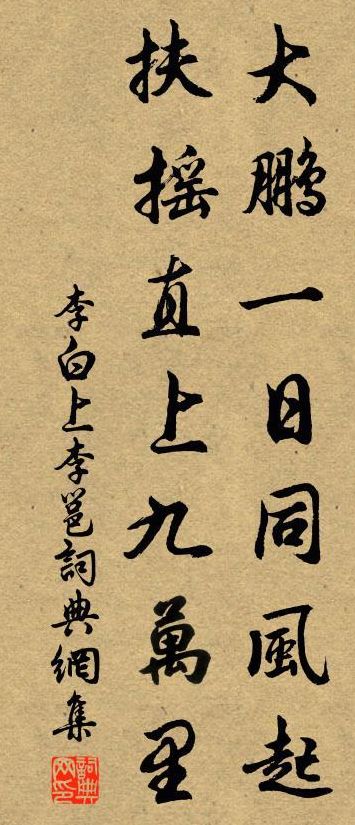 大鹏一日同風起
扶摇直上九萬里
李白上李邕詞典網集
詞典网印